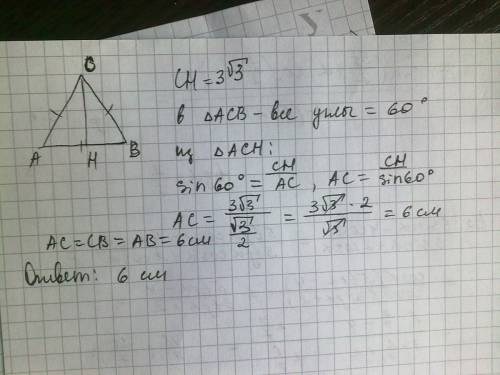 C
A
H
B
CH = 3√3
в ΔACB – все углы = 60°
из ΔACH:
sin60° = CH/AC, AC = CH/sin60°
AC = 3√3/(√3/2) = 3√3 · 2/√3 = 6 см
AC = CB = AB = 6 см
Ответ: 6 см